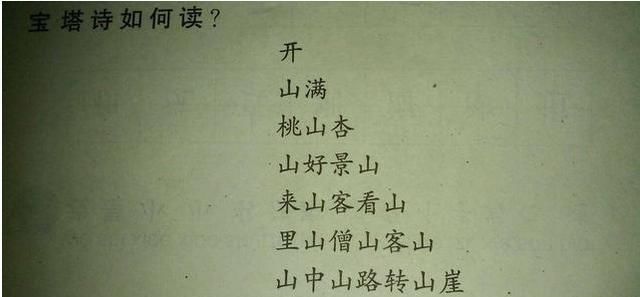 宝塔诗如何读？
开
山满
桃山杏
山好景山
来山客看山
里山僧山客山
山中山路转山崖